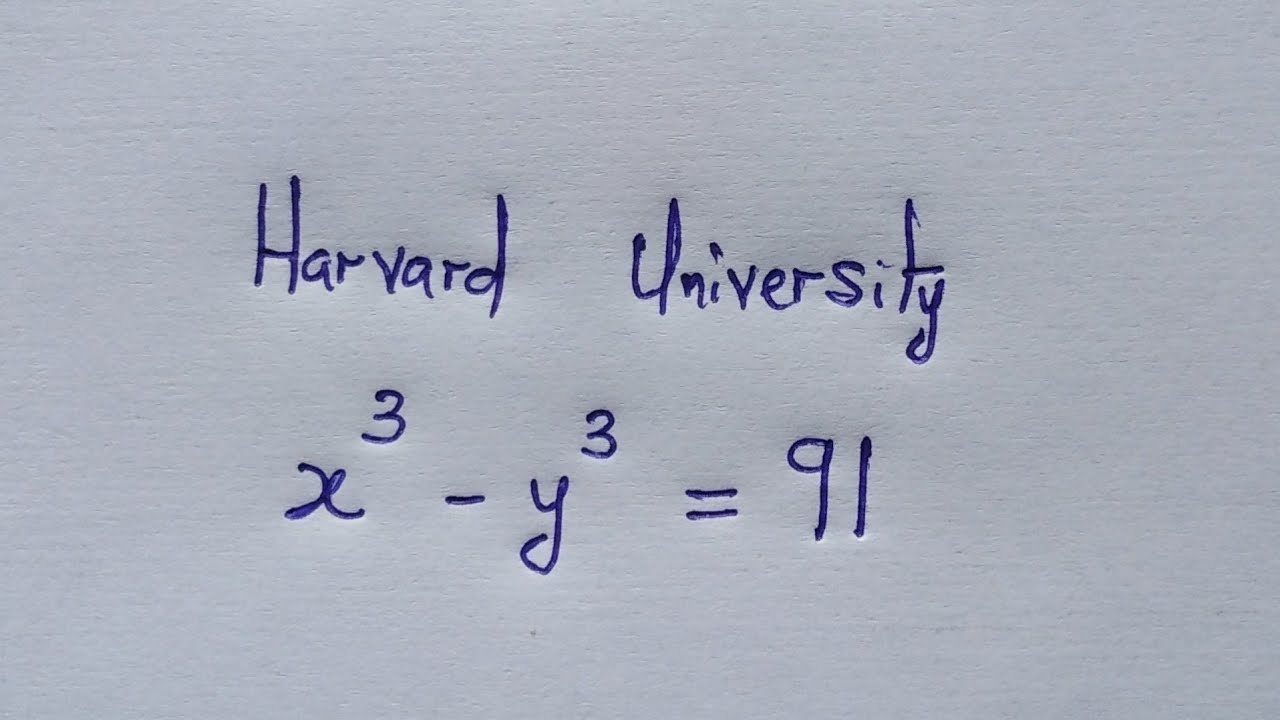 Harvard University
x³ - y³ = 91